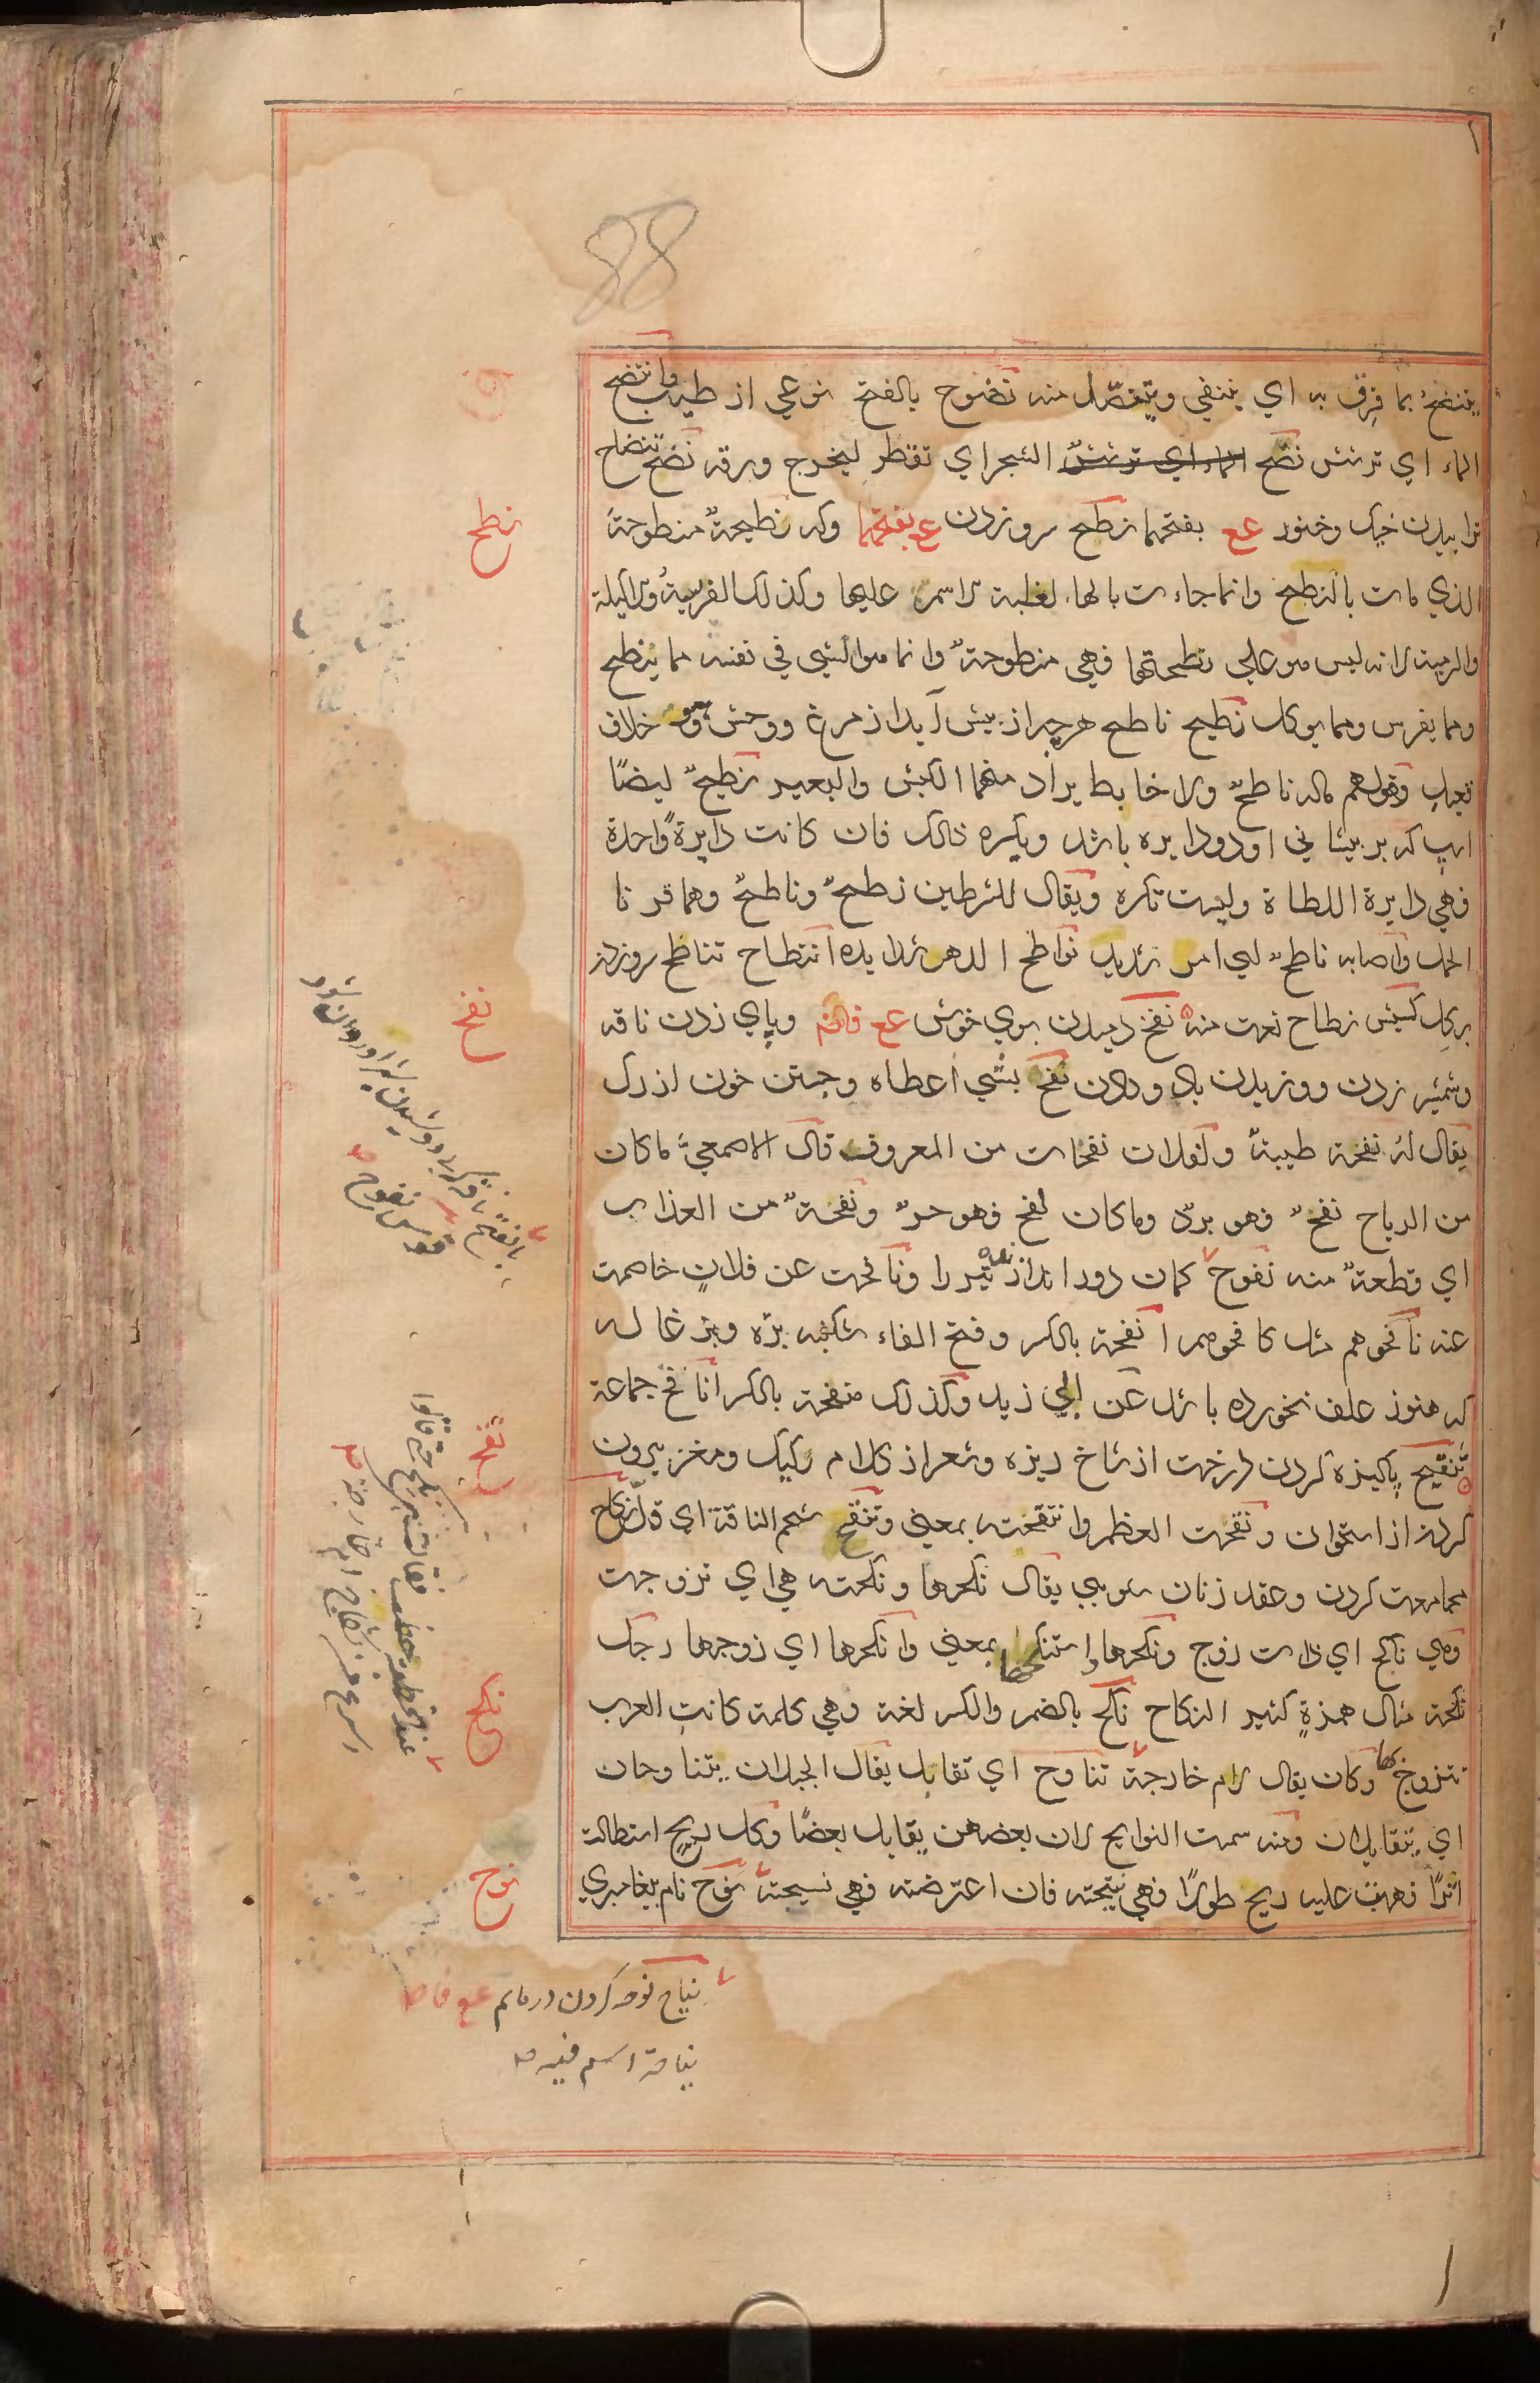 88
ينتضح بما قرف به اي ينتفي ويتنصل منه نضوح بالفتح نوعي از طيب وانتضح
الماء اي ترشش نضح الماء اي ترشش الشجر اي تفطر ليخرج ورقه نضح تنضاح
ترابيدن خيك وخنور عع بفتحهما نطح سرو زدن ع بفتحهما وكه نطيحة منطوحة
الذي مات بالنطح وانما جاءت بالهاء لغلبة الاسم عليها وكذلك الفريسة والاكيلة
والرمية لانه ليس هو على نطحتها فهي منطوحة وانما هو الشي في نفسه مما ينطح
ومما يفرس ومما يوكل نطيح ناطح هرچه از پيش آيد از مرغ ووحش وهو خلاف
قعيد وقولهم ماله ناطح ولا خابط يراد منهما الكبش والبعير نطيح ايضًا
اسپ كه بر پيشاني او دو دايره باشد ويكره ذلك فان كانت دايرة واحدة
فهي دايرة اللطاة وليست تكره ويقال للشرطين نطح وناطح وهما قرنا
الحمل واصابه ناطح اي امر شديد نواطح الدهر شدايده انتطاح تناطح سرو زدن
بر يكديگر كبش نطاح نعت منه نفح دميدن بوي خوش عع فانم وپاي زدن ناقه
وشمشير زدن ووزيدن باد ودادن نفح بشي اعطاه وجستن خون از رگ
يقال له نفحة طيبة ولفلان نفحات من المعروف قال الاصمعي ما كان
من الرياح نفح فهو برد وما كان لفح فهو حر ونفحة من العذاب
اي قطعة منه نفوح كمان دور اندازنده تير را ونافحت عن فلان خاصمت
عنه نافحوهم مثل كافحوهم انفحة بالكسر وفتح الفاء شكنبه بره وبزغاله
كه هنوز علف نخورده باشد عن ابي زيد وكذلك منفحة بالكسر انافح جماعة
تنقيح پاكيزه كردن درخت از شاخ ريزه وشعر از كلام ركيك ومغز بيرون
كردن از استخوان ونقحت العظم وانتقحته بمعنى وتنقح شحم الناقة اي قل نكاح
مجامعت كردن وعقد زنان شويي يقال نكحها ونكحته هي اي تزوجت
وهي ناكح اي ذات زوج ونكحها واستنكحها بمعنى وانكحها اي زوجها رجل
نكحة مثال همزة كثير النكاح نكح بالضم والكسر لغة وهي كلمة كانت العرب
تتزوج بها وكان يقال لام خارجة تناوح اي تقابل يقال الجبلان يتناوحان
اي يتقابلان ومنه سميت النوايح لان بعضهن يقابل بعضًا وكل ريح استطالت
اثرًا فهبت عليه ريح طولًا فهي نيحته فان اعترضته فهي نسيجته نوح نام پيغامبري
نطح
نفح
نقح
نكح
نوح
نياح نوحه كردن در ماتم عع فاصا
نياحة اسم فيه